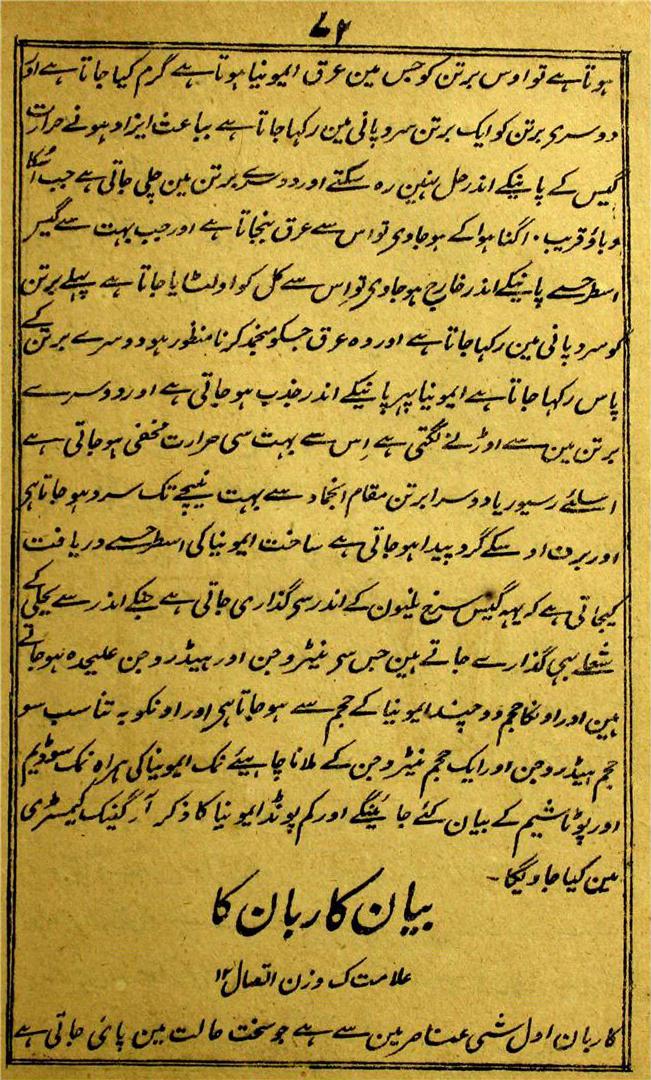 ۷۲
ہوتا ہے تو اوس برتن کو جس مین عرق ایمونیا ہوتا ہے گرم کیا جاتا ہے اور
دوسری برتن کو ایک برتن سرد پانی مین رکہا جاتا ہے بباعث ایزاد ہونے حرارت
گیس کے پانیکے اندر حل نہین رہ سکتے اور دوسرے برتن مین چلی جاتی ہے جب اسکا
دباؤ قریب ۱۰ گنا ہوا کے ہو جاوی تو اس سے عرق بنجاتا ہے اور جب بہت سے گیس
اسطرحسے پانیکے اندر خارج ہو جاوی تو اِس سے کل کو اولٹایا جاتا ہے پہلے برتن
کو سرد پانی مین رکہا جاتا ہے اور وہ عرق جسکو منجمد کرنا منظور ہو دوسرے برتن کے
پاس رکہا جاتا ہے ایمونیا پہر پانیکے اندر جذب ہو جاتی ہے اور دوسرے
برتن مین سے اوڑنے لگتی ہے اِس سے بہت سی حرارت مخفی ہو جاتی ہے
اسلئے رسیور یا دوسرا برتن مقام انجماد سے بہت نیچے تک سرد ہو جاتا ہی
اور برف اوسکے گرد پیدا ہو جاتی ہے ساخت ایمونیا کی اسطرحسے دریافت
کیجاتی ہے کہ یہہ گیس سرخ نلیون کے اندر سی گذاری جاتی ہے جنکے اندر سے بجلی کے
شعلے بہی گذارے جاتے ہین جس سی نیٹروجن اور ہیڈروجن علیحدہ ہو جاتے
ہین اور اونکا حجم دوچند ایمونیا کے حجم سے ہو جاتا ہی اور اونکو بہ تناسب سو
حجم ہیڈروجن اور ایک حجم نیٹروجن کے ملانا چاہیئے نمک ایمونیا کی ہمراہ نمک سوڈیم
اور پوٹاشیم کے بیان کئے جائینگے اور کم پونڈ ایمونیا کا ذکر آرگینک کیمسٹری
مین کیا جاویگا۔
بیان کاربان کا
علامت ک وزن اتصال ۱۲
کاربان اول شی عناصر مین سے ہے جو سخت حالت مین پائی جاتی ہے